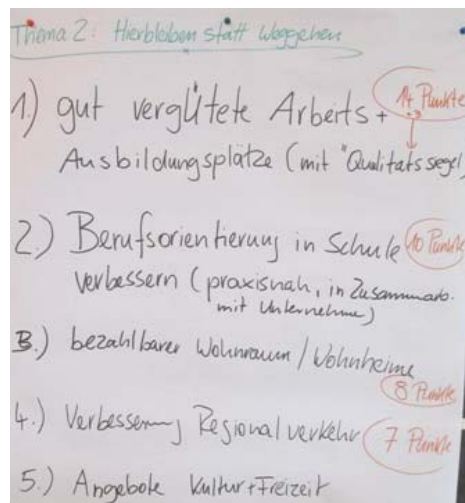 Thema 2: Hierbleiben statt weggehen
1.) gut vergütete Arbeits + 14 Punkte
Ausbildungsplätze (mit "Qualitätssiegel)
2.) Berufsorientierung in Schule 10 Punkte
verbessern (praxisnah, in Zusammenarb.
mit Unternehme)
3.) bezahlbarer Wohnraum / Wohnheime
8 Punkte
4.) Verbesserung Regionalverkehr 7 Punkte
5.) Angebote Kultur + Freizeit